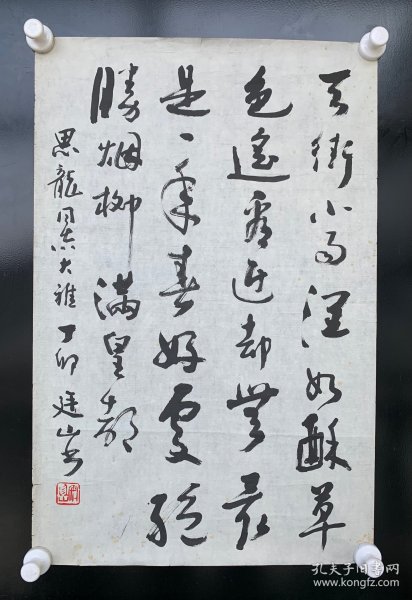 天街小雨润如酥草
色遥看近却无最
是一年春好处绝
胜烟柳满皇都
思龙同志大雅 丁卯 廷山书
孔夫子旧书网
www.kongfz.com